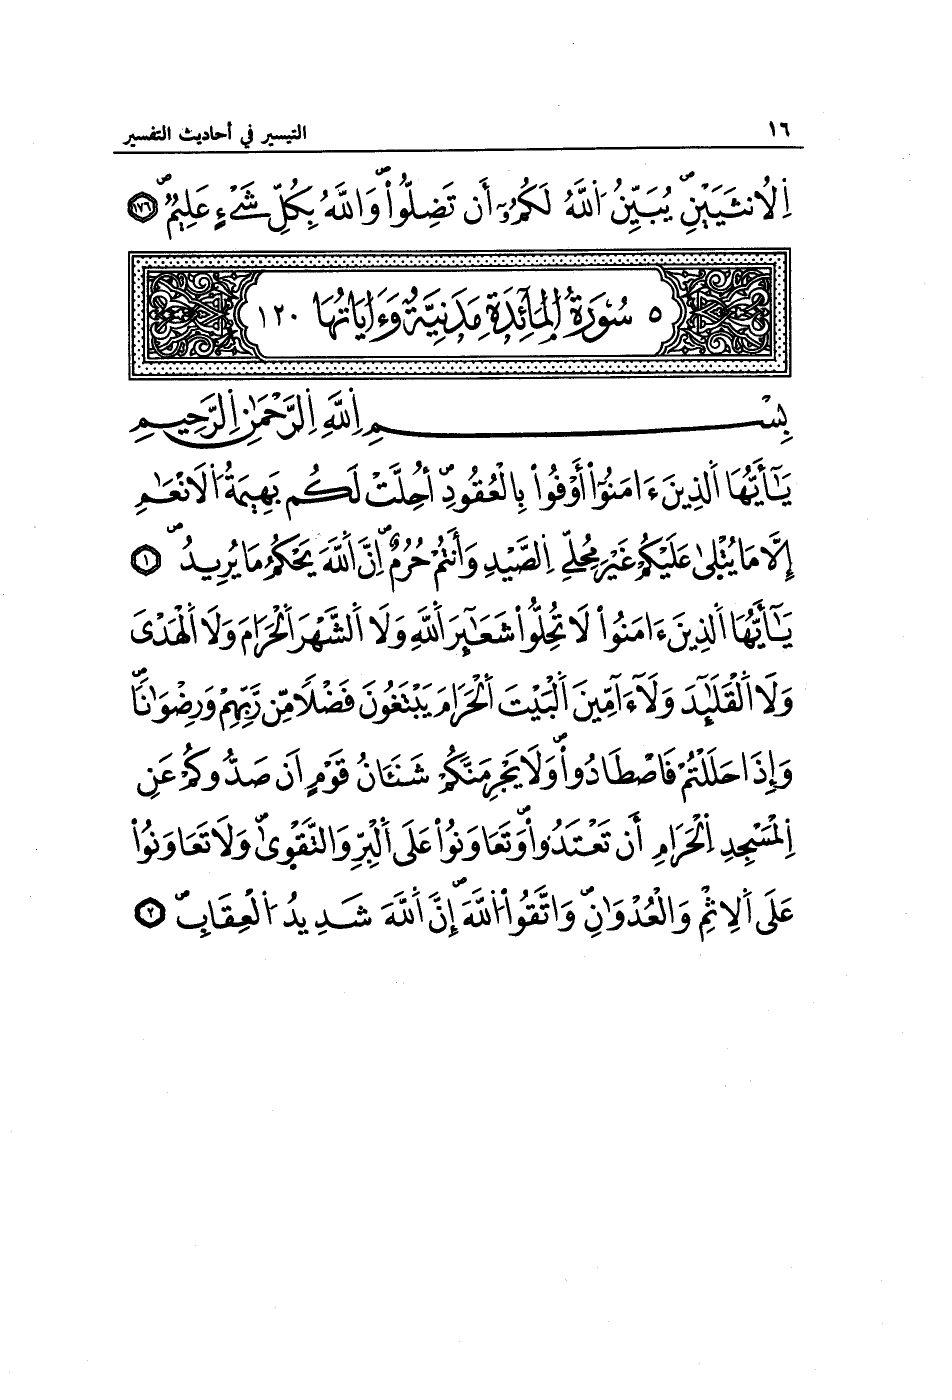 ١٦ التيسير في أحاديث التفسير
اِ۬لُانثَيَيْنِۖ يُبَيِّنُ اُ۬للَّهُ لَكُمُۥٓ أَن تَضِلُّواْۖ وَاللَّهُ بِكُلِّ شَےْءٍ عَلِيمٌۖ ١٧٦
٥ سُورَةُ اُ۬لْمَآئِدَةِ مَدَنِيَّةٌ وَءَايَاتُهَا ١٢٠
بِسْمِ اِ۬للَّهِ اِ۬لرَّحْمَٰنِ اِ۬لرَّحِيمِ
يَٰٓأَيُّهَا اَ۬لذِينَ ءَامَنُوٓاْ أَوْفُواْ بِالْعُقُودِۖ أُحِلَّتْ لَكُم بَهِيمَةُ اُ۬لَانْعَٰمِ
إِلَّا مَا يُتْلَىٰ عَلَيْكُمْ غَيْرَ مُحِلِّے اِ۬لصَّيْدِ وَأَنتُمْ حُرُمٌۖ اِنَّ اَ۬للَّهَ يَحْكُمُ مَا يُرِيدُۖ ١
يَٰٓأَيُّهَا اَ۬لذِينَ ءَامَنُواْ لَا تُحِلُّواْ شَعَٰٓئِرَ اَ۬للَّهِ وَلَا اَ۬لشَّهْرَ اَ۬لْحَرَامَ وَلَا اَ۬لْهَدْىَ
وَلَا اَ۬لْقَلَٰٓئِدَ وَلَآ ءَآمِّينَ اَ۬لْبَيْتَ اَ۬لْحَرَامَ يَبْتَغُونَ فَضْلًا مِّن رَّبِّهِمْ وَرِضْوَٰنًاۖ
وَإِذَا حَلَلْتُمْ فَاصْطَادُواْۖ وَلَا يَجْرِمَنَّكُمْ شَنَـَٔانُ قَوْمٍ اَن صَدُّوكُمْ عَنِ
اِ۬لْمَسْجِدِ اِ۬لْحَرَامِ أَن تَعْتَدُواْۖ وَتَعَاوَنُواْ عَلَى اَ۬لْبِرِّ وَالتَّقْوَىٰۖ وَلَا تَعَاوَنُواْ
عَلَى اَ۬لِاثْمِ وَالْعُدْوَٰنِۖ وَاتَّقُواْ اُ۬للَّهَ إِنَّ اَ۬للَّهَ شَدِيدُ اُ۬لْعِقَابِۖ ٢